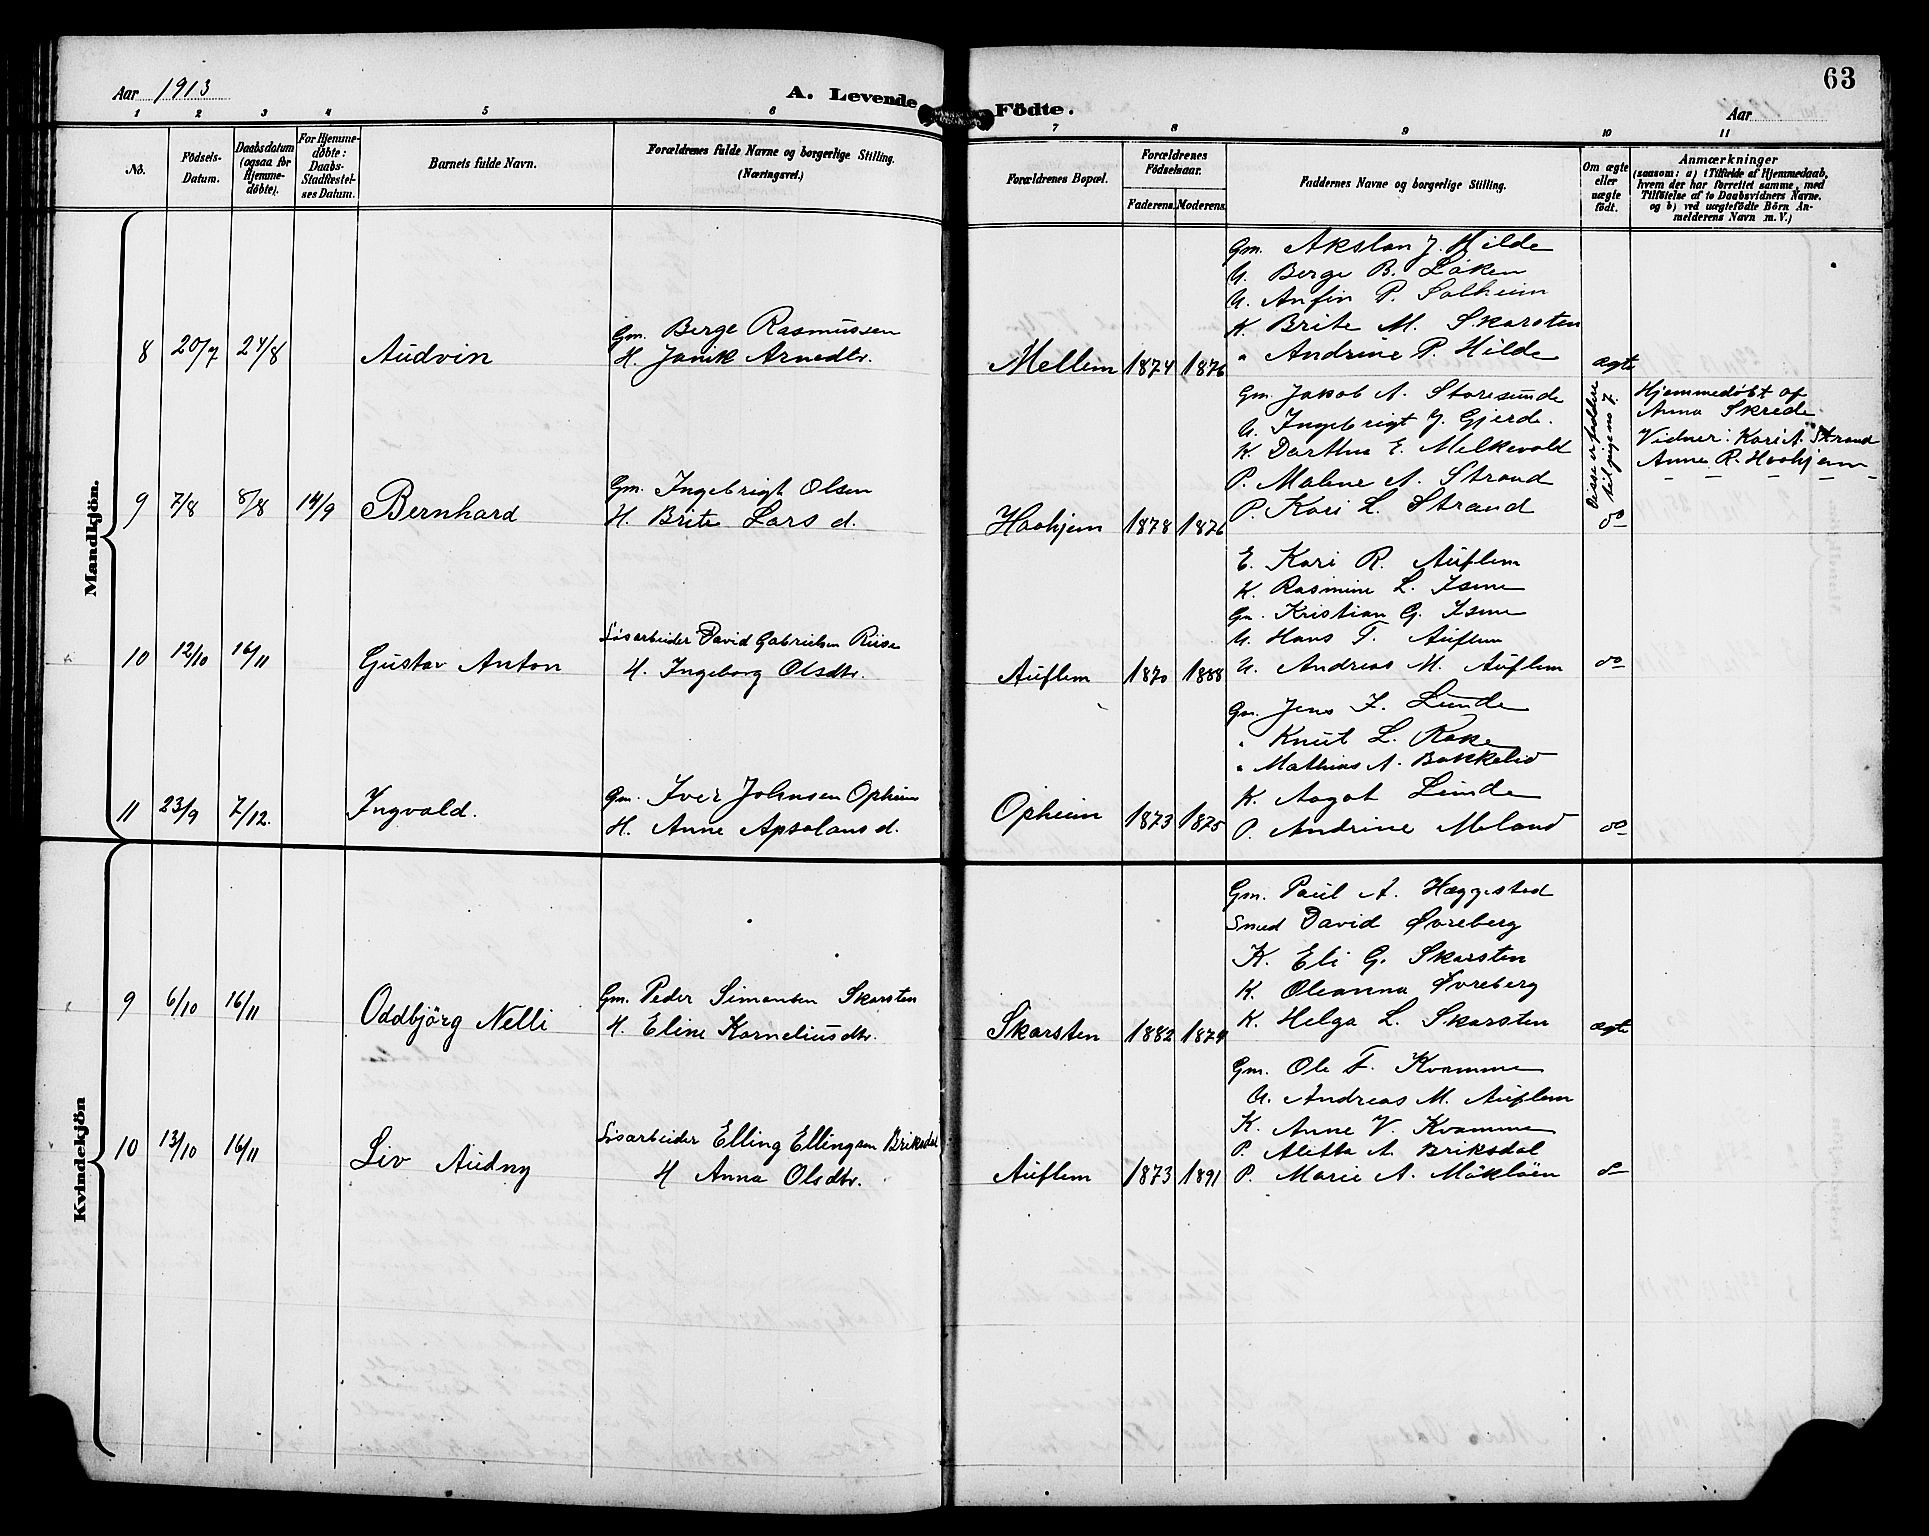 63
Aar 1913
A. Levende Födte.
Aar
1 2 3 4 5 6 7 8 9 10 11
No.
Födsels-Datum.
Daabsdatum (ogsaa for Hjemmedöbte).
For Hjemmedøbte: Daabs-Stadfæstelses Datum.
Barnets fulde Navn.
Forældrenes fulde Navne og borgerlige Stilling.
(Næringsvei.)
Forældrenes Bopæl.
Forældrenes Födselsaar.
Faderens. Moderens.
Faddernes Navne og borgerlige Stilling.
Om ægte eller uægte födt.
Anmærkninger
(saasom: a) i Tilfælde af Hjemmedaab,
hvem der har forrettet samme, med
Tilföielse af to Daabsvidners Navne.
og b) ved uægtefödte Börn An-
melderens Navn m. V.)
Mandkjön.
Gm. Akslan J. Hilde
U. Berge B. Løken
U. Anfin P. Solheim
K. Brite M. Skarsten
8 20/7 24/8 Audvin
Gm. Berge Rasmussen
H. Janik Arnedtr.
Mellem 1874 1876
" Andrine P. Hilde ægte
Gm. Jakob A. Storesunde
U. Ingebrigt J. Gjerde.
K. Dorthea E. Melkevold
P. Malene A. Strand
P. Kari L. Strand
Disse er faddere til pigens 7.
Hjemmedøbt af
Anna Skrede
Vidner: Kari A. Strand
Anne R. Haahjem
9 7/8 8/8 14/9 Bernhard
Gm. Ingebrigt Olsen
H. Brite Lars d.
Haahjem 1878 1876 do
E. Kari R. Auflem
K. Rasmine L. Isene
Gm. Kristian G. Isene
U. Hans T. Auflem
10 12/10 16/11 Gustav Anton
Løsarbeider David Gabrielsen Riise
H. Ingeborg Olsdtr.
Auflem 1870 1888
U. Andreas M. Auflem do
Gm. Jens I. Lunde
" Knut L. Rake
" Mathias A. Bakkelid
K. Aagot Lunde
11 23/9 7/12. Ingvald.
Gm. Iver Johnsen Opheim
H. Anne Apsolons d.
Opheim 1873 1875
P. Andrine Meland do
Kvindekjön
Gm. Paul A. Hæggestad
Smed David Øvreberg
K. Eli G. Skarsten
K. Oleanna Øvreberg
9 6/10 16/11 Oddbjörg Nelli
Gm. Peder Simonsen Skarsten
H. Eline Korneliusdtr.
Skarsten 1882 1879
K. Helga L. Skarsten ægte
Gm. Ole T. Kvamme
U. Andreas M. Auflem
K. Anne V. Kvamme
P. Alitta A. Briksdal
10 13/10 16/11 Liv Audny
Løsarbeider Elling Ellingsen Briksdal
H Anna Olsdtr.
Auflem 1873 1891
P. Marie A. Mökløen do